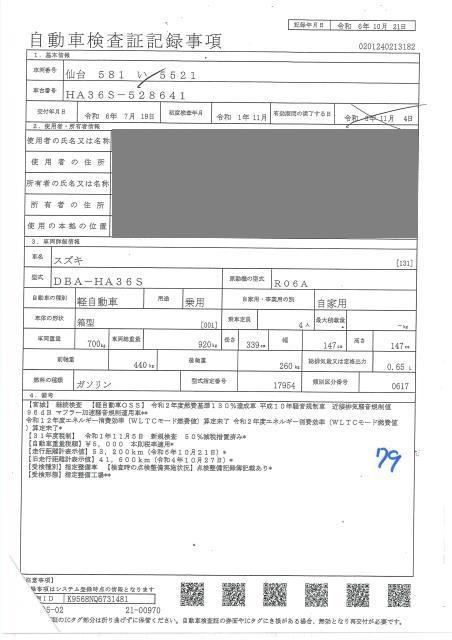 記録年月日 令和 6年10月21日
自動車検査証記録事項
0201240213182
1. 基本情報
車両番号 仙台 581 い 5521
車台番号 HA36S-528641
交付年月日 令和 6年 7月19日 初度検査年月 令和 1年11月 有効期間の満了する日
2. 使用者・所有者情報
使用者の氏名又は名称
使用者の住所
所有者の氏名又は名称
所有者の住所
使用の本拠の位置
3. 車両詳細情報
車名 スズキ [131]
型式 DBA-HA36S 原動機の型式 R06A
自動車の種別 軽自動車 用途 乗用 自家用・事業用の別 自家用
車体の形状 箱型 [001] 乗車定員 4人 最大積載量 -kg
車両重量 700kg 車両総重量 920kg 長さ 339cm 幅 147cm 高さ 147cm
前軸重 440kg 後軸重 260kg 総排気量又は定格出力 0.65 L
燃料の種類 ガソリン 型式指定番号 17954 類別区分番号 0617
4. 備考
【宮城】 継続検査 【軽自動車OSS】 令和2年度燃費基準130%達成車 平成10年騒音規制車 近接排気騒音規制値
96dB マフラー加速騒音規制適用車**
令和12年度エネルギー消費効率(WLTCモード燃費値)算定未了 令和2年度エネルギー消費効率(WLTCモード燃費値
)算定未了*
【31年度税制】 令和1年11月5日 新規検査 50%減税措置済み*
【自動車重量税額】¥5,000 本則税率適用*
【走行距離計表示値】53,200km(令和6年10月21日)*
【旧走行距離計表示値】41,600km(令和4年10月27日)*
【受検種別】指定整備車 【検査時の点検整備実施状況】点検整備記録簿記載あり*
【受検形態】指定整備工場**
79
意事項】
事項はシステム登録時点の情報となります
ID K9568NQ6731481
5-02 21-00970
のICタグ部分は折り曲げずに保管ください。自動車検査証の券面やICタグにき損がある場合、無効となり再交付が必要です。